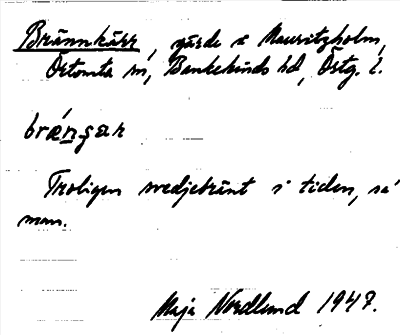 Brännkärr, gärde i Mauritzholm,
Örtomta sn, Bankekinds hd, Östg. l.
brä́ns̱ar
Troligen svedjebränt i tiden, sa'
man.
Maja Nordlund 1947.